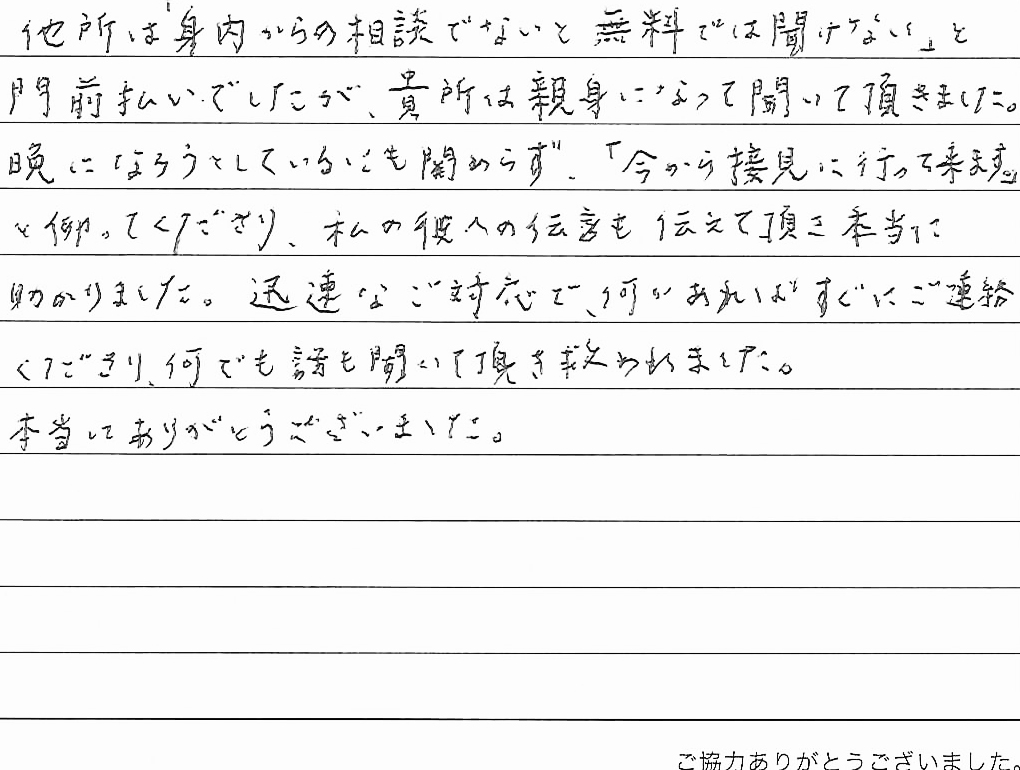 他所は「身内からの相談でないと無料では聞けない」と
門前払いでしたが、貴所は親身になって聞いて頂きました。
晩になろうとしているにも関わらず、「今から接見に行って来ます。」
と仰ってくださり、私の彼への伝言も伝えて頂き本当に
助かりました。迅速なご対応で、何かあればすぐにご連絡
くださり、何でも話も聞いて頂き救われました。
本当にありがとうございました。
ご協力ありがとうございました。